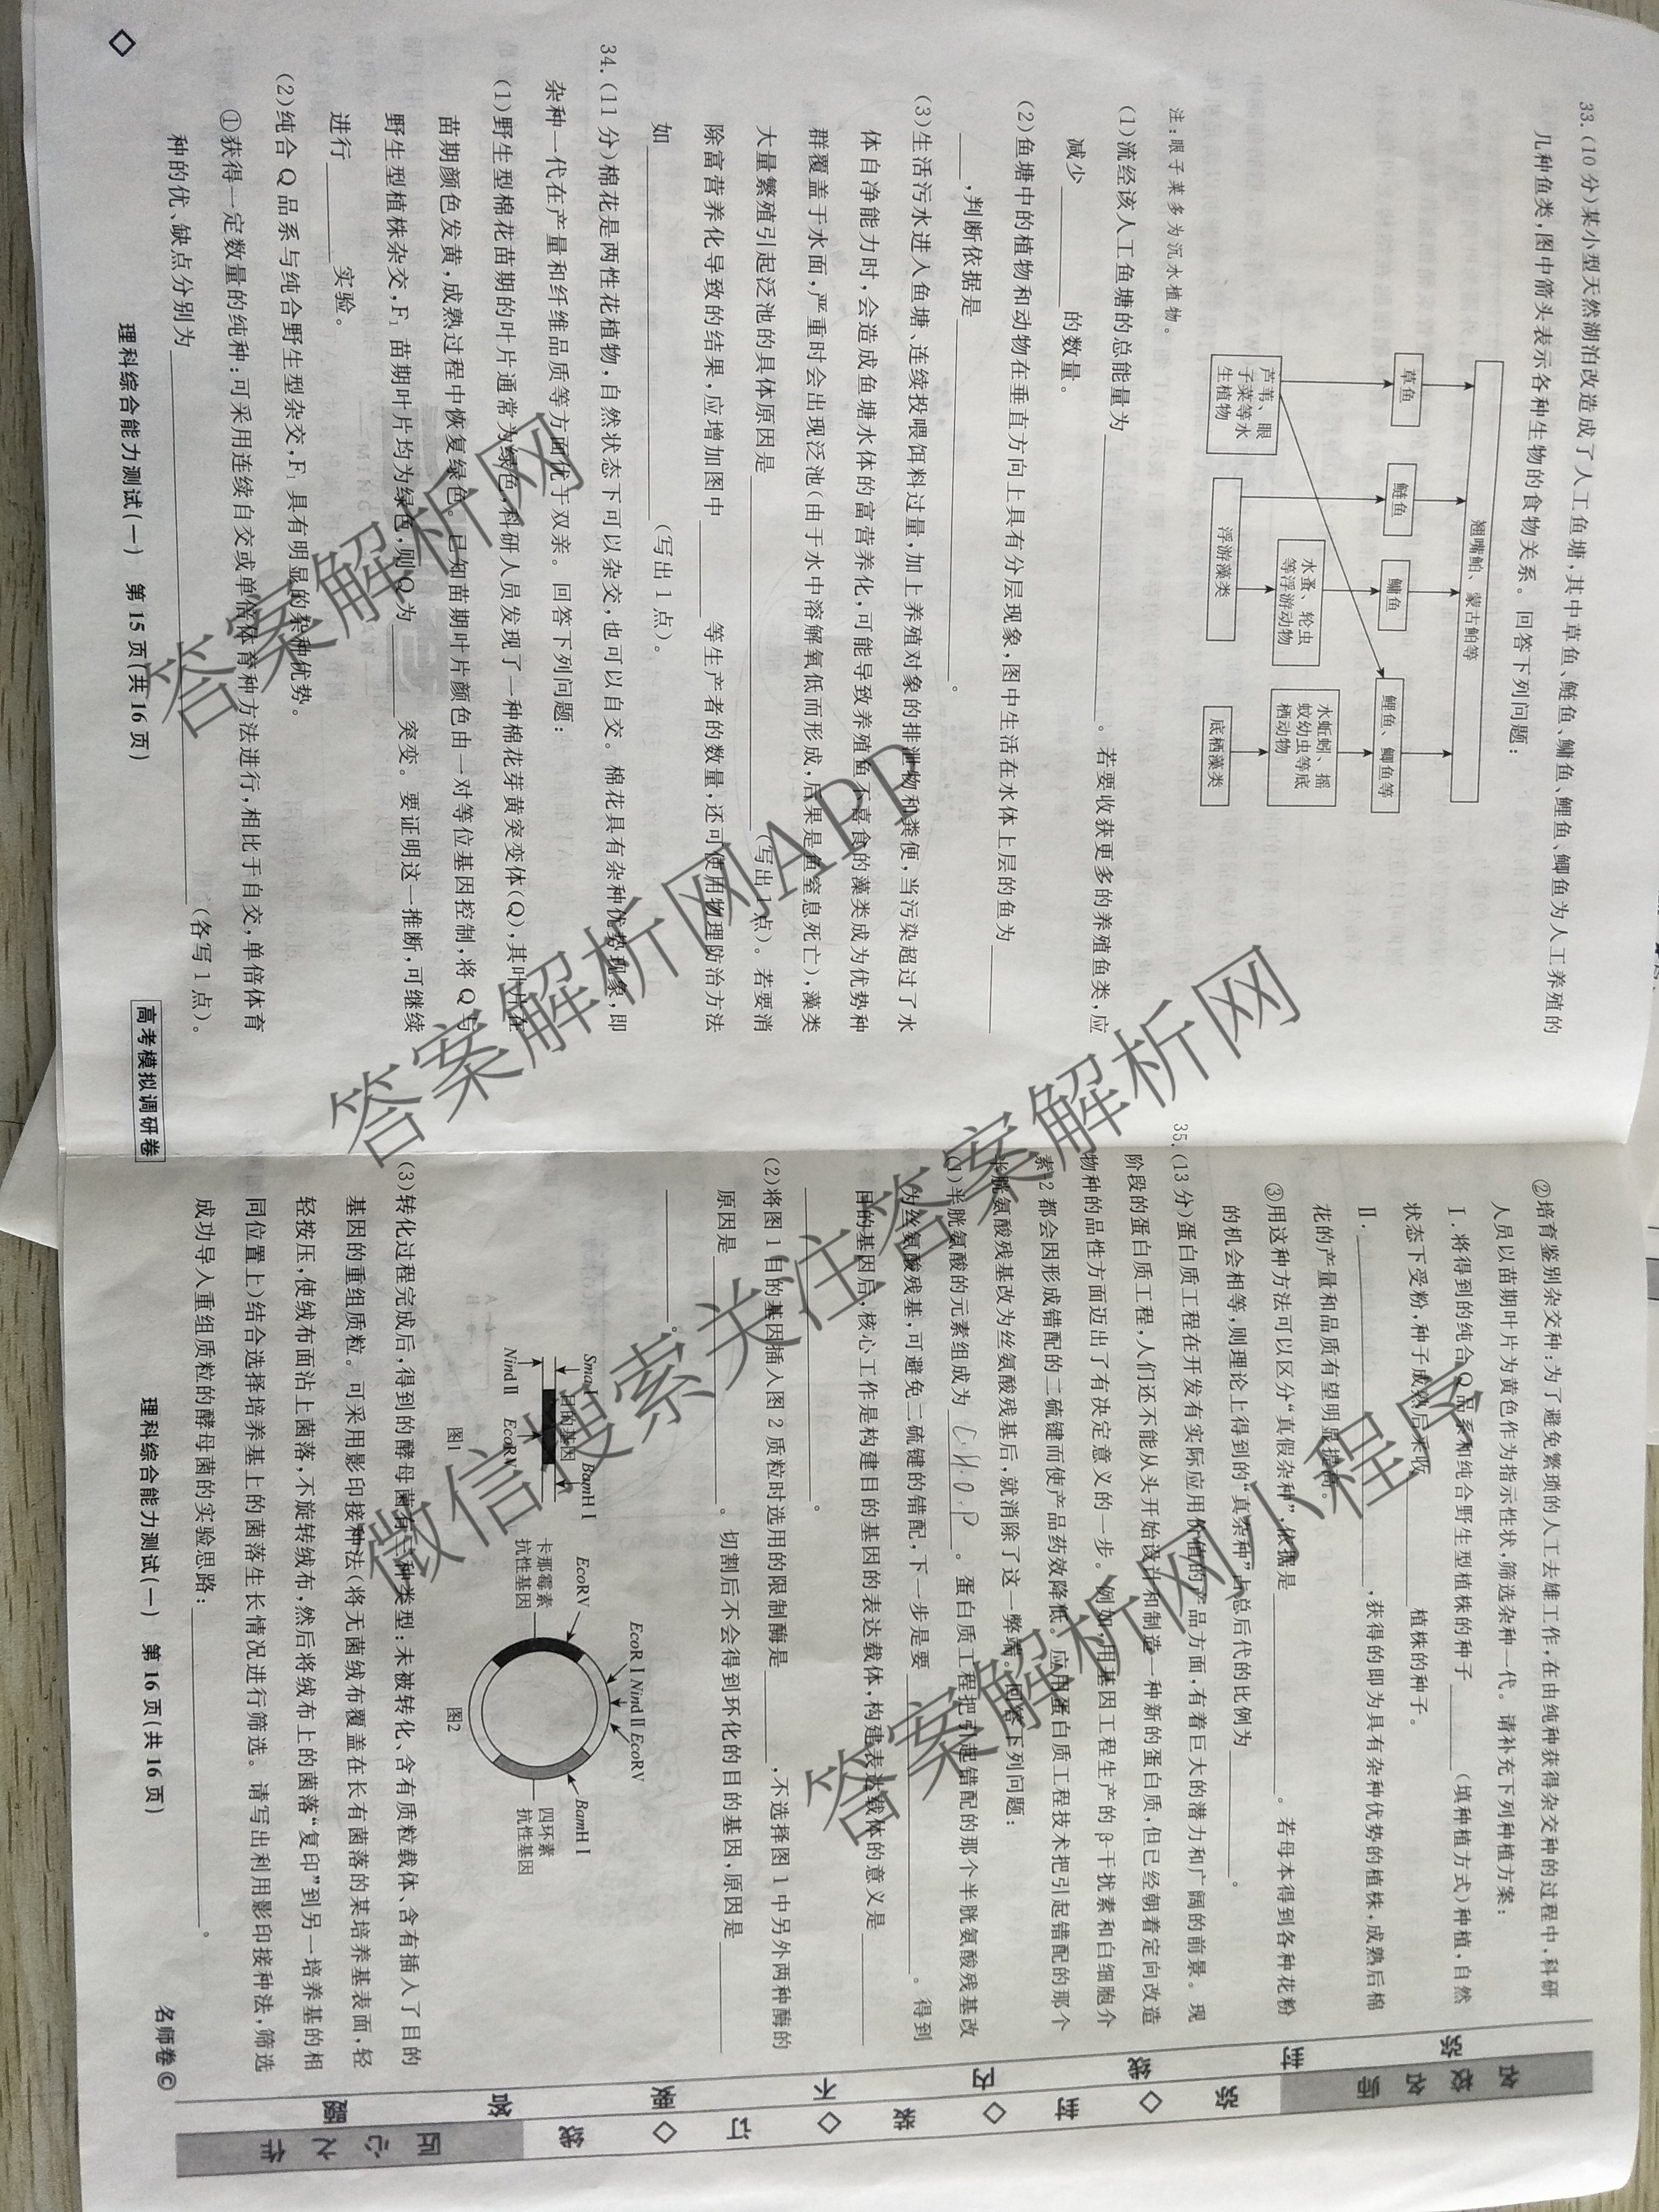 33.(10分)某小型天然湖泊改造成了人工鱼塘,其中草鱼、鲢鱼、鳙鱼、鲤鱼、鲫鱼为人工养殖的
几种鱼类,图中箭头表示各种生物的食物关系。回答下列问题:
翘嘴鲌、蒙古鲌等
草鱼
鲢鱼
鳙鱼
鲤鱼、鲫鱼等
芦苇、眼
子菜等水
生植物
浮游藻类
水蚤、轮虫
等浮游动物
水蚯蚓、摇
蚊幼虫等底
栖动物
底栖藻类
注:眼子菜多为沉水植物。
(1)流经该人工鱼塘的总能量为________。若要收获更多的养殖鱼类,应
减少________的数量。
(2)鱼塘中的植物和动物在垂直方向上具有分层现象,图中生活在水体上层的鱼为________
____,判断依据是________。
(3)生活污水进入鱼塘、连续投喂饵料过量,加上养殖对象的排泄物和粪便,当污染超过了水
体自净能力时,会造成鱼塘水体的富营养化,可能导致养殖鱼不喜食的藻类成为优势种
群覆盖于水面,严重时会出现泛池(由于水中溶解氧低而形成,后果是鱼窒息死亡),藻类
大量繁殖引起泛池的具体原因是________(写出1点)。若要消
除富营养化导致的结果,应增加图中________等生产者的数量,还可使用物理防治方法
如________(写出1点)。
34.(11分)棉花是两性花植物,自然状态下可以杂交,也可以自交。棉花具有杂种优势现象,即
杂种一代在产量和纤维品质等方面优于双亲。回答下列问题:
(1)野生型棉花苗期的叶片通常为绿色,科研人员发现了一种棉花芽黄突变体(Q),其叶片在
苗期颜色发黄,成熟过程中恢复绿色。已知苗期叶片颜色由一对等位基因控制,将Q与
野生型植株杂交,F₁苗期叶片均为绿色,则Q为________突变。要证明这一推断,可继续
进行________实验。
(2)纯合Q品系与纯合野生型杂交,F₁具有明显的杂种优势。
①获得一定数量的纯种:可采用连续自交或单倍体育种方法进行,相比于自交,单倍体育
种的优、缺点分别为________(各写1点)。
理科综合能力测试(一) 第15页(共16页)
高考模拟调研卷
②培育鉴别杂交种:为了避免繁琐的人工去雄工作,在由纯种获得杂交种的过程中,科研
人员以苗期叶片为黄色作为指示性状,筛选杂种一代。请补充下列种植方案:
Ⅰ.将得到的纯合Q品系和纯合野生型植株的种子________(填种植方式)种植,自然
状态下受粉,种子成熟后采收________植株的种子。
Ⅱ.________,获得的即为具有杂种优势的植株,成熟后棉
花的产量和品质有望明显提高。
③用这种方法可以区分“真假杂种”,依据是________。若母本得到各种花粉
的机会相等,则理论上得到的“真杂种”占总后代的比例为________。
35.(13分)蛋白质工程在开发有实际应用价值的产品方面,有着巨大的潜力和广阔的前景。现
阶段的蛋白质工程,人们还不能从头开始设计和制造一种新的蛋白质,但已经朝着定向改造
物种的品性方面迈出了有决定意义的一步。例如,用基因工程生产的β-干扰素和白细胞介
素12都会因形成错配的二硫键而使产品药效降低。应用蛋白质工程技术把引起错配的那个
半胱氨酸残基改为丝氨酸残基后,就消除了这一弊端。回答下列问题:
(1)半胱氨酸的元素组成为C.H.O.P。蛋白质工程把引起错配的那个半胱氨酸残基改
为丝氨酸残基,可避免二硫键的错配,下一步是要________。得到
目的基因后,核心工作是构建目的基因的表达载体,构建表达载体的意义是________
________。
(2)将图1目的基因插入图2质粒时选用的限制酶是________,不选择图1中另外两种酶的
原因是________。切割后不会得到环化的目的基因,原因是________
________。
SmaⅠ 目的基因 BamHⅠ
NindⅡ EcoRV
图1
EcoRV
EcoRⅠ NindⅡ EcoRV
BamHⅠ
卡那霉素
抗性基因
四环素
抗性基因
图2
(3)转化过程完成后,得到的酵母菌有三种类型:未被转化、含有质粒载体、含有插入了目的
基因的重组质粒。可采用影印接种法(将无菌绒布覆盖在长有菌落的某培养基表面,轻
轻按压,使绒布面沾上菌落,不旋转绒布,然后将绒布上的菌落“复印”到另一培养基的相
同位置上)结合选择培养基上的菌落生长情况进行筛选。请写出利用影印接种法,筛选
成功导入重组质粒的酵母菌的实验思路:________。
理科综合能力测试(一) 第16页(共16页)
名师卷©
弥 封 线 内 不 要 答 题
弥 封 装 订 线
匠心之作
答案解析网
答案解析网APP
微信搜索关注答案解析网
答案解析网小程序